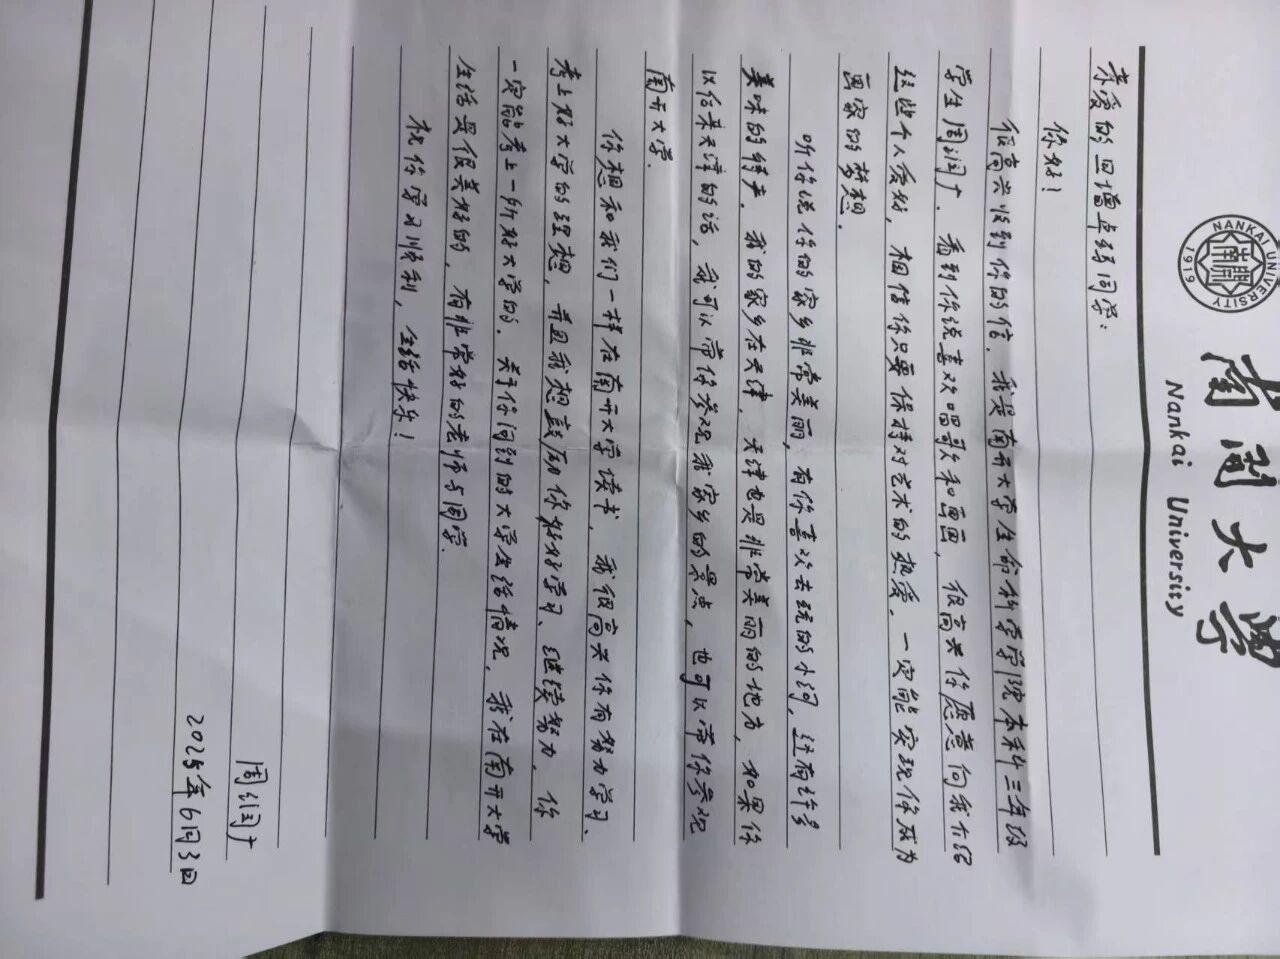 NANKAI UNIVERSITY
1919
南開
南開大學
Nankai University
亲爱的四增卓玛同学：
你好！
很高兴收到你的信，我是南开大学生命科学学院本科三年级
学生周润广，看到你说喜欢唱歌和画画，很高兴你愿意向我介绍
这些个人爱好，相信你只要保持对艺术的热爱，一定能实现你成为
画家的梦想。
听你说你的家乡非常美丽，有你喜欢去玩的小河，还有许多
美味的特产，我的家乡在天津，天津也是非常美丽的地方，如果你
以后来天津的话，我可以带你参观我家乡的景点，也可以带你参观
南开大学。
你想和我们一样在南开大学读书，我很高兴你有努力学习、
考上好大学的理想，并且我想鼓励你好好学习、继续努力，你
一定能考上一所好大学的。关于你问到的大学生活情况，我在南开大学
生活是很美好的，有非常好的老师与同学。
祝你学习顺利，生活快乐！
周润广
2025年6月3日